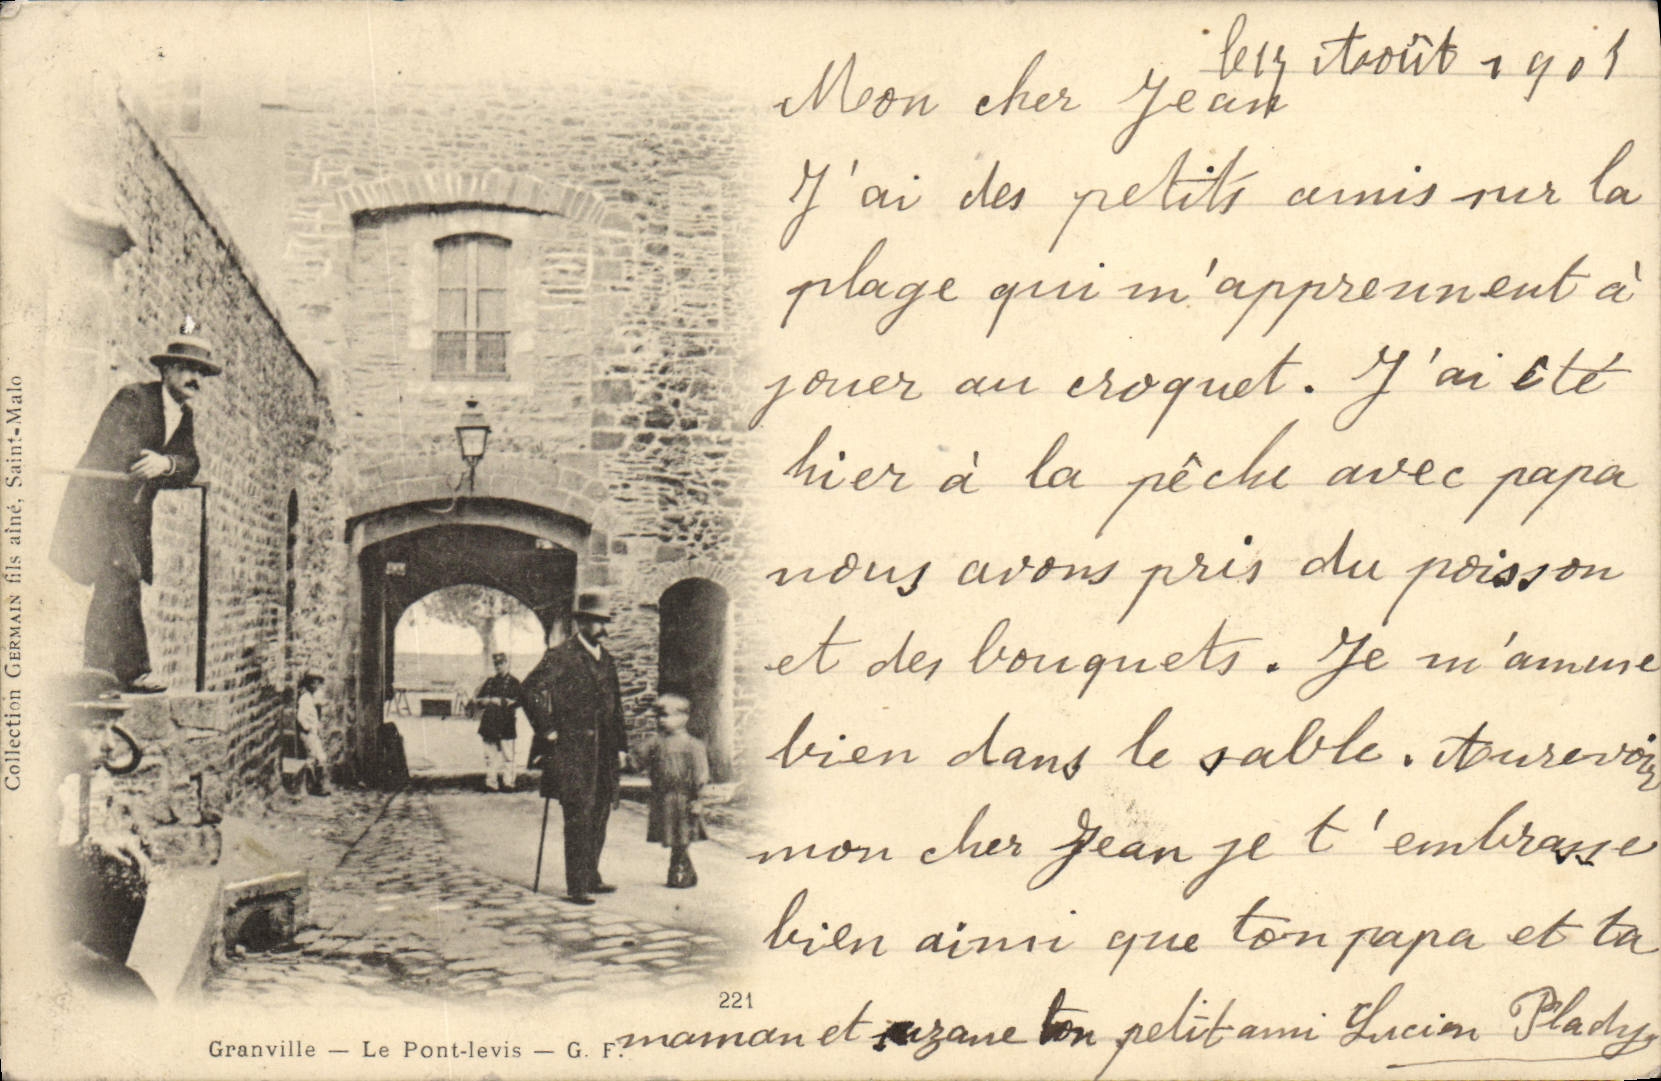 le 17 Août 1901
Mon cher Jean
J'ai des petits amis sur la
plage qui m'apprennent à
jouer au croquet. J'ai été
hier à la pêche avec papa
nous avons pris du poisson
et des bouquets. Je m'amuse
bien dans le sable. Aurevoir
mon cher Jean je t'embrasse
bien ainsi que ton papa et ta
maman et suzane ton petit ami Lucien
221
Granville — Le Pont-levis — G. F.
Collection GERMAIN fils aîné, Saint-Malo